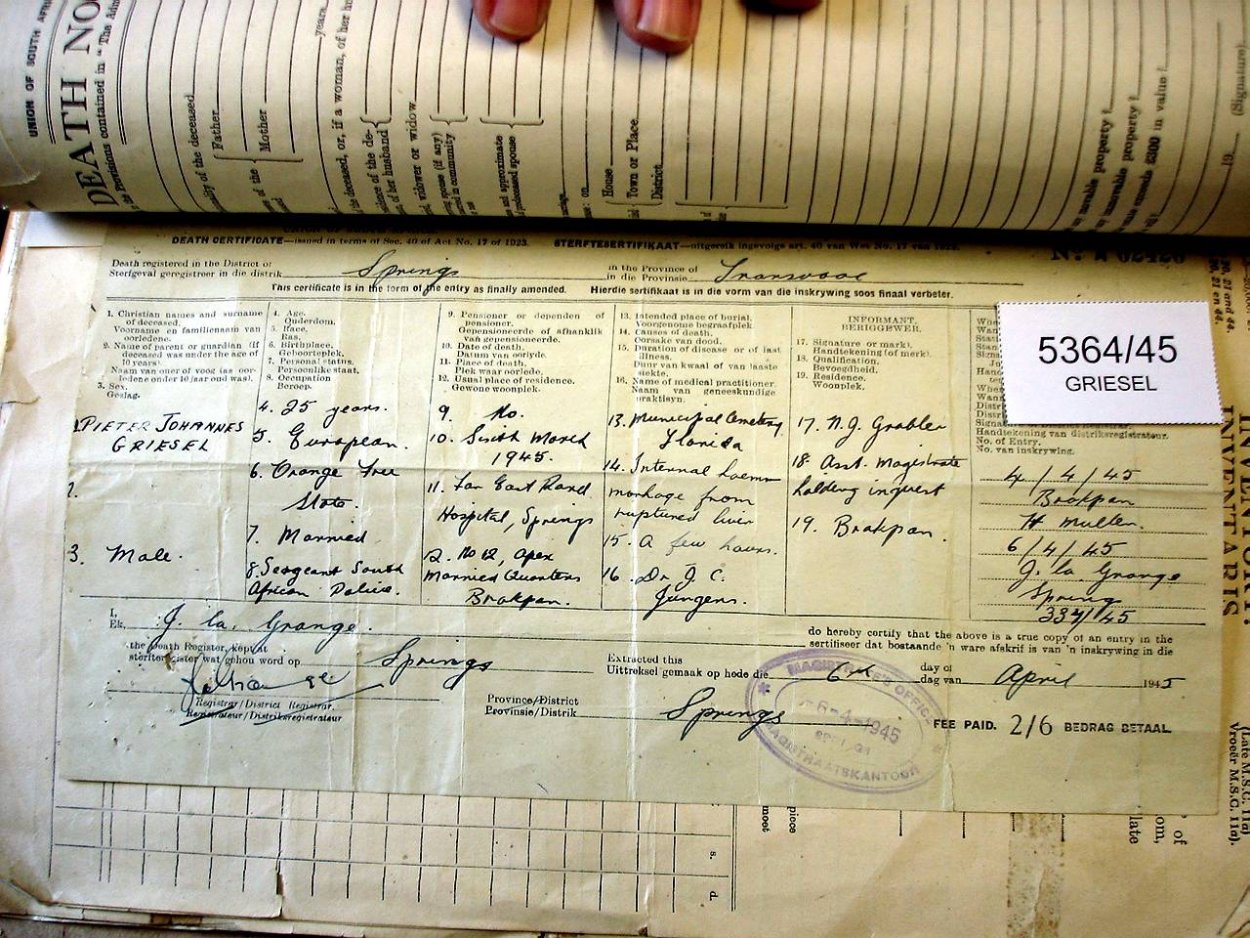 UNION OF SOUTH AFR
DEATH NO
the Provisions contained in "The Adm
ality of the deceased
Father
Mother
years
the deceased, or, if a woman, of her h
of her husband
widower or widow
House
Town or Place
District
movable property?
immovable property?
exceeds £300 in value?
19
(Signature).
DEATH CERTIFICATE—issued in terms of Sec. 40 of Act No. 17 of 1923. STERFTESERTIFIKAAT—uitgereik ingevolge art. 40 van Wet No. 17 van 1923.
Death registered in the District of
Sterfgeval geregistreer in die distrik Springs
in the Province of
in die Provinsie Transvaal
This certificate is in the form of the entry as finally amended. Hierdie sertifikaat is in die vorm van die inskrywing soos finaal verbeter.
1. Christian names and surname
of deceased.
Voorname en familienaam van
oorledene.
2. Name of parent or guardian (if
deceased was under the age of
10 years).
Naam van ouer of voog (as oor-
ledene onder 10 jaar oud was).
3. Sex.
Geslag.
4. Age.
Ouderdom.
5. Race.
Ras.
6. Birthplace.
Geboorteplek.
7. Personal status.
Persoonlike staat.
8. Occupation
Beroep.
9. Pensioner or dependen of
pensioner.
Gepensioeneerde of afhanklik
van gepensioeneerde.
10. Date of death.
Datum van oorlyde.
11. Place of death.
Plek waar oorlede.
12. Usual place of residence.
Gewone woonplek.
13. Intended place of burial.
Voorgenome begraafplek.
14. Causes of death.
Oorsake van dood.
15. Duration of disease or of last
illness.
Duur van kwaal of van laaste
siekte.
16. Name of medical practitioner.
Naam van geneeskundige
praktisyn.
INFORMANT.
BERIGGEWER.
17. Signature (or mark).
Handtekening (of merk).
18. Qualification.
Bevoegdheid.
19. Residence.
Woonplek.
5364/45
GRIESEL
Handtekening van distriksregistrateur.
No. of Entry.
No. van inskrywing.
1. PIETER JOHANNES
GRIESEL
2.
3. Male.
4. 25 years.
5. European.
6. Orange Free
State.
7. Married
8. Sergeant South
African Police.
9. No.
10. Sixth March
1945.
11. Far East Rand
Hospital, Springs
12. No 12, Apex
Married Quarters
Brakpan.
13. Municipal Cemetery
Florida
14. Internal haemo
rrhage from
ruptured liver
15. A few hours.
16. Dr. J. C.
Jurgens.
17. N. J. Grobler
18. Asst. Magistrate
holding inquest
19. Brakpan.
4/4/45
Brakpan
H Muller.
6/4/45
J. la Grange
Springs
334/45
I,
Ek, J. la. Grange.
do hereby certify that the above is a true copy of an entry in the
sertifiseer dat bostaande 'n ware afskrif is van 'n inskrywing in die
the Death Register, kept at
sterfteregister wat gehou word op Springs
Extracted this
Uittreksel gemaak op hede die 6th
day of
dag van April 1945
Registrar/District Registrar.
Registrateur/Distriksregistrateur
Province/District
Provinsie/Distrik Springs
MAGISTRATE'S OFFICE
-6-4-1945
MAGISTRAATSKANTOOR
FEE PAID. 2/6 BEDRAG BETAAL.
INVENTORY.
INVENTARIS
(Late M.S.C. 11(a)
Vroeër M.S.C. 11(a).
s.
d.